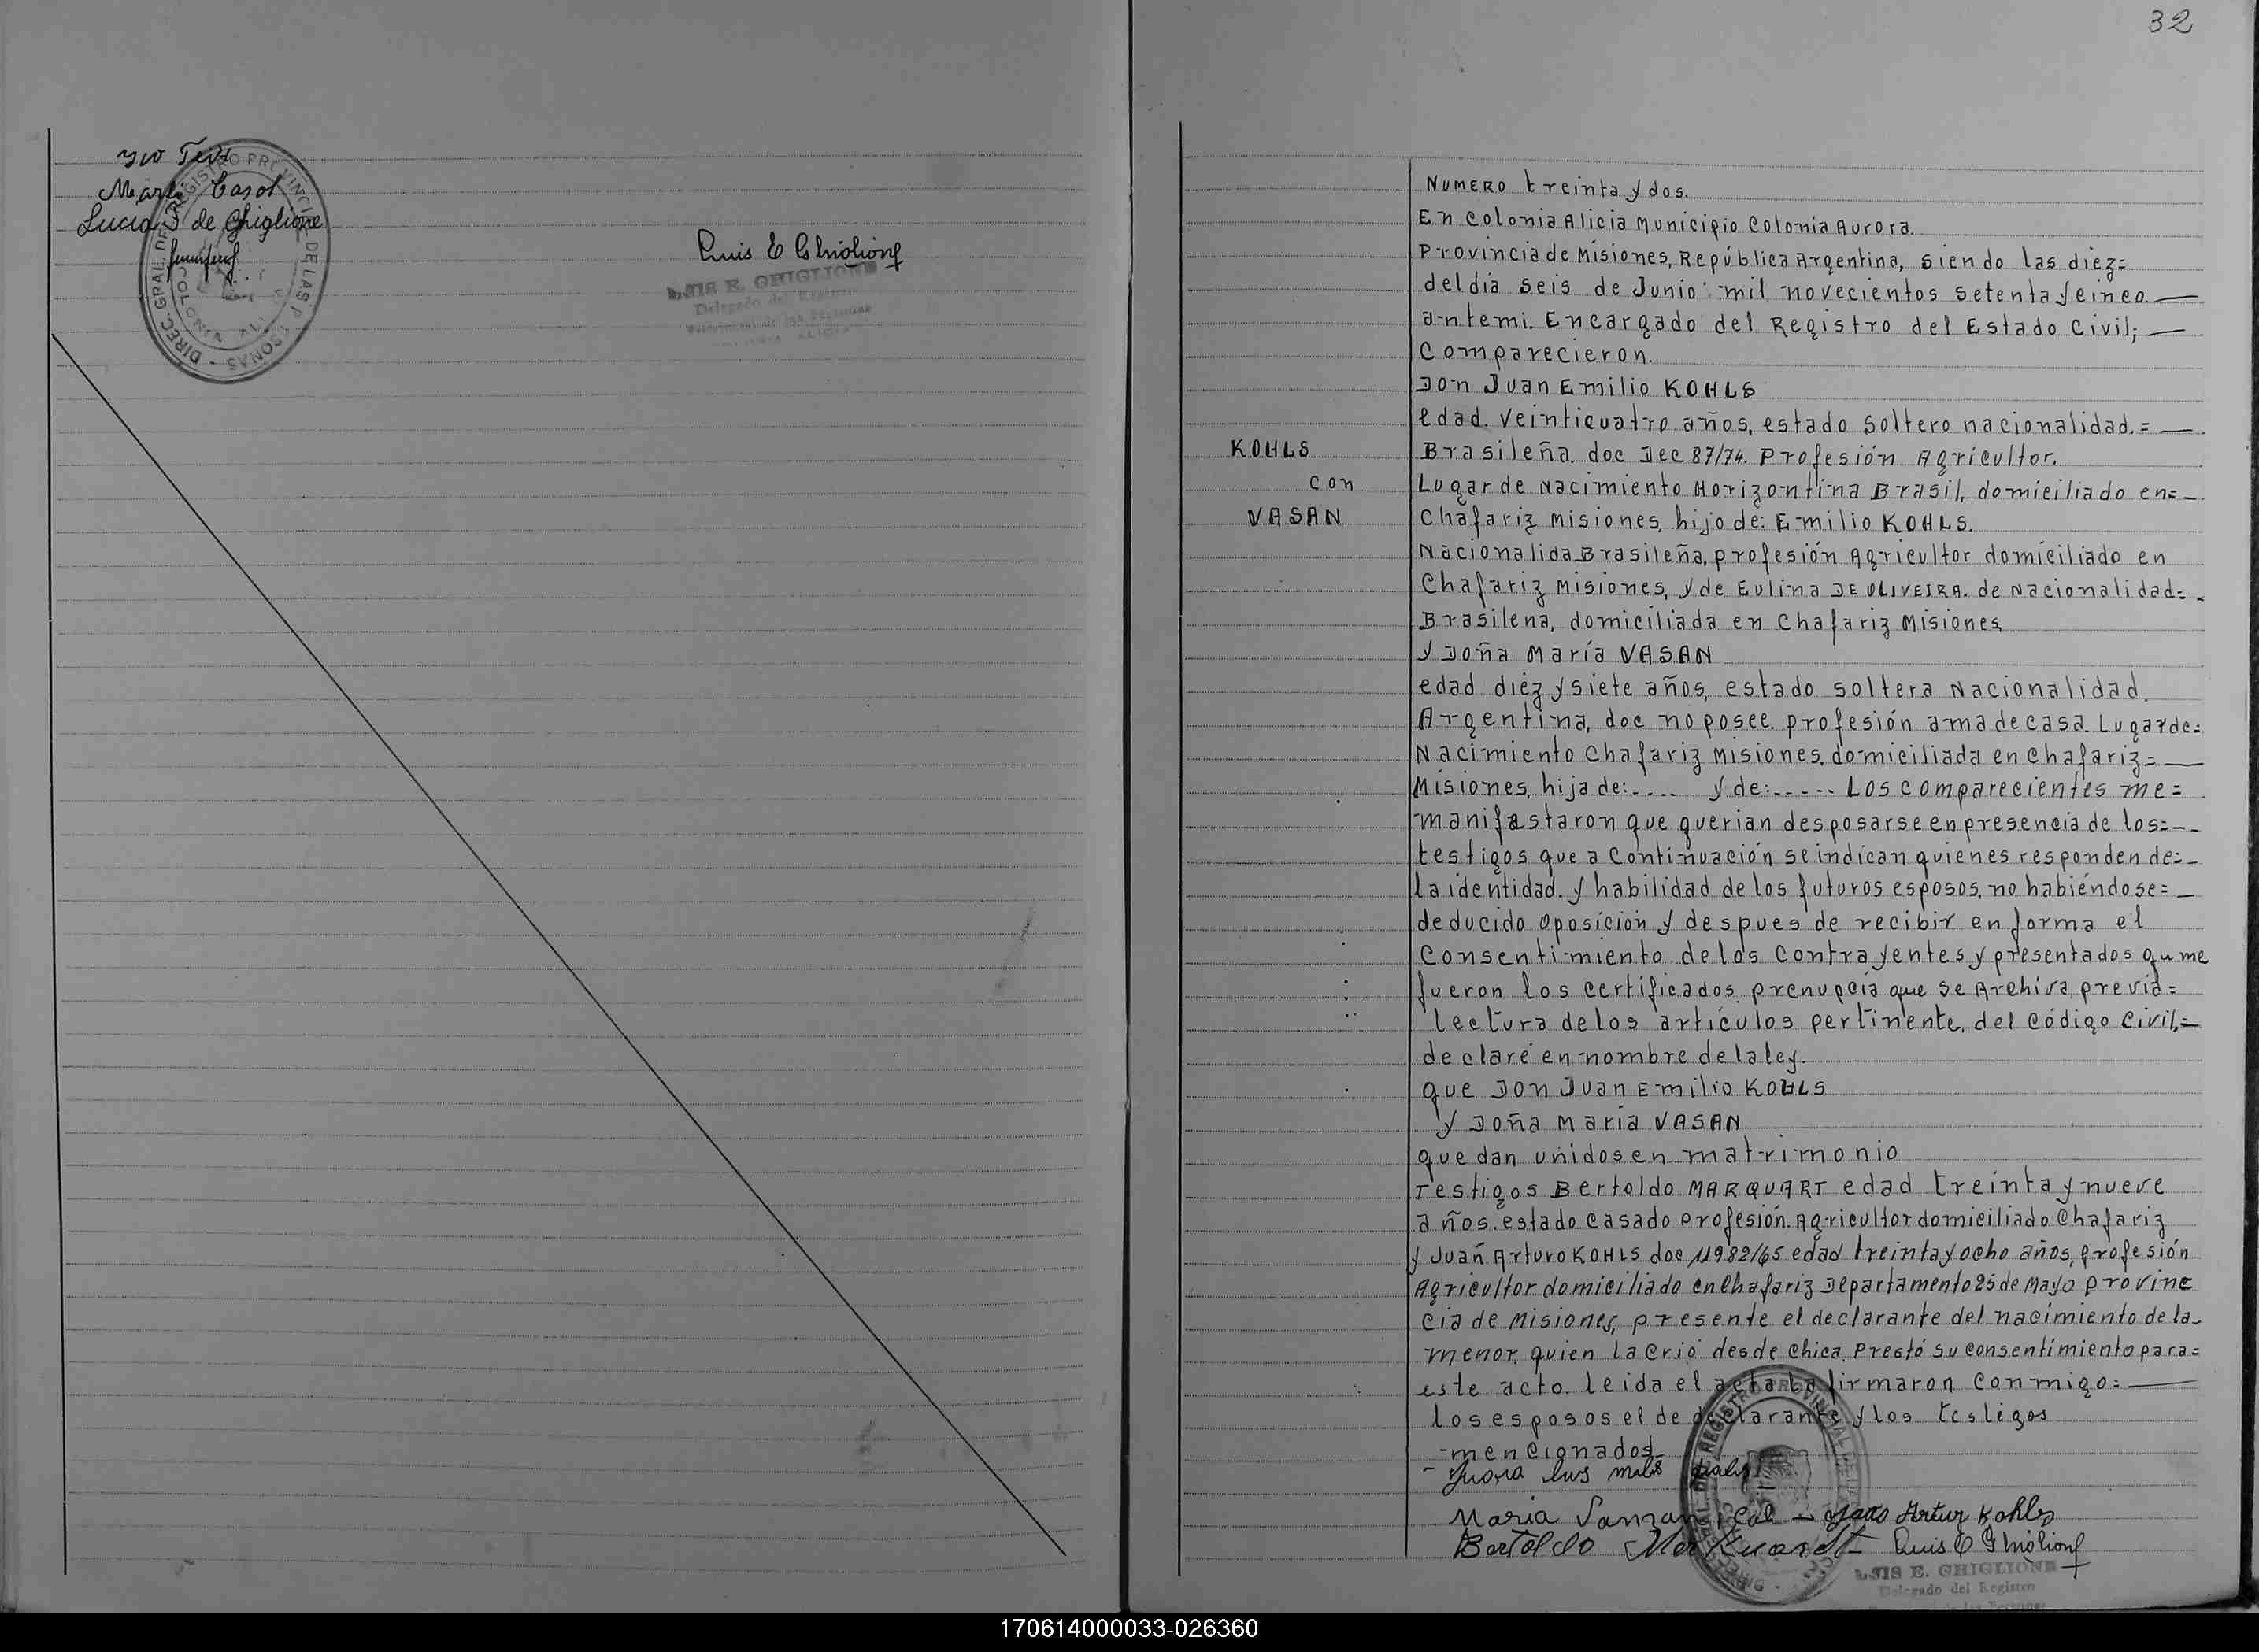 Lucia S de Ghiglione
Luis E Ghiglione
LUIS E. GHIGLIONE
Delegado del Registro
Provincial de las Personas
DIREC. GRAL. DEL REGISTRO PROVINCIAL DE LAS PERSONAS
32
NUMERO treinta y dos.
En Colonia Alicia Municipio Colonia Aurora.
Provincia de Misiones, República Argentina, siendo las diez=
del día seis de Junio mil novecientos setenta y cinco.
antemi. Encargado del Registro del Estado Civil;
Comparecieron.
Don Juan Emilio KOHLS
edad. veinticuatro años, estado soltero nacionalidad.=
KOHLS
Brasileña. doc Dec 87/74. Profesión Agricultor.
con
Lugar de Nacimiento Horizontina Brasil, domiciliado en=
VASAN
Chafariz Misiones, hijo de: Emilio KOHLS.
Nacionalida Brasileña, profesión Agricultor domiciliado en
Chafariz Misiones, y de Eulina DE OLIVEIRA. de Nacionalidad=
Brasilena, domiciliada en Chafariz Misiones
y Doña María VASAN
edad diez y siete años, estado soltera Nacionalidad.
Argentina, doc no posee. profesión ama de casa. Lugar de=
Nacimiento Chafariz Misiones. domiciliada en Chafariz=
Misiones, hija de:.... y de:..... Los comparecientes me=
manifestaron que querian desposarse en presencia de los=
testigos que a Continuación se indican quienes responden de=
la identidad. y habilidad de los futuros esposos, no habiéndose=
deducido oposición y despues de recibir en forma el
Consentimiento de los Contrayentes y presentados qu me
fueron los certificados prenupcia que se Archiva, previa=
lectura delos artículos pertinente, del Código Civil,=
declaré en nombre de la ley.
que Don Juan Emilio KOHLS
y Doña Maria VASAN
quedan unidos en matrimonio
Testigos Bertoldo MARQUART edad treinta y nueve
años. estado casado profesión. Agricultor domiciliado Chafariz
y Juan Arturo KOHLS doc 11982/65 edad treinta y ocho años, profesión
Agricultor domiciliado en Chafariz Departamento 25 de Mayo provinc
cia de Misiones, presente el declarante del nacimiento de la
menor. quien la crió desde chica. Prestó su consentimiento para=
este acto. leida el acta la firmaron conmigo:
los esposos el de declarante y los testigos
mencionados
Maria
Artur Kohls
Bertoldo
Luis E Ghiglione
LUIS E. GHIGLIONE
Delegado del Registro
170614000033-026360